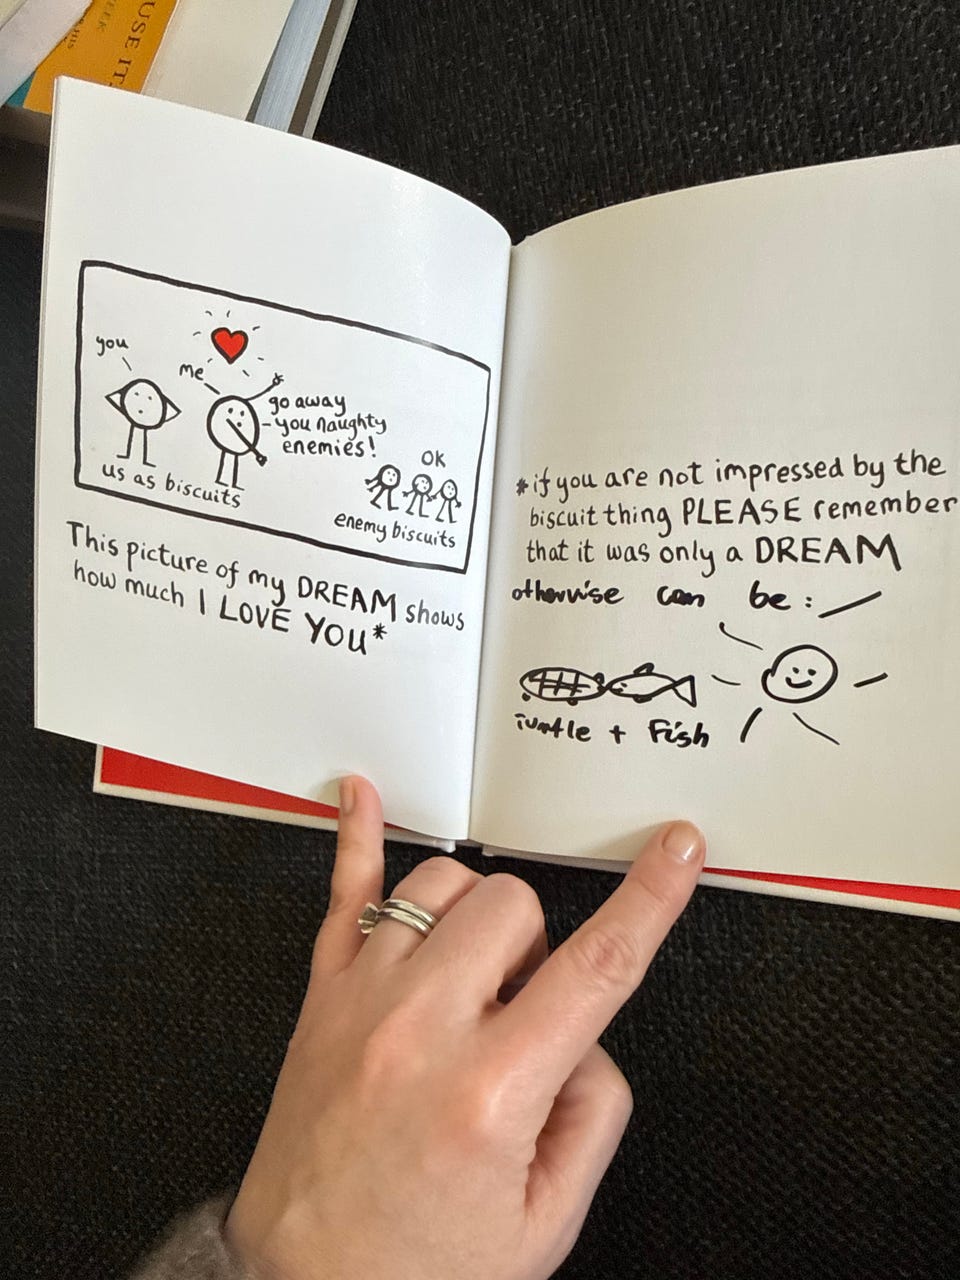 USE IT
EEK
HIS
you
me
go away
you naughty
enemies!
OK
us as biscuits
enemy biscuits
This picture of my DREAM shows
how much I LOVE YOU*
*if you are not impressed by the
biscuit thing PLEASE remember
that it was only a DREAM
otherwise can be:
Turtle + Fish